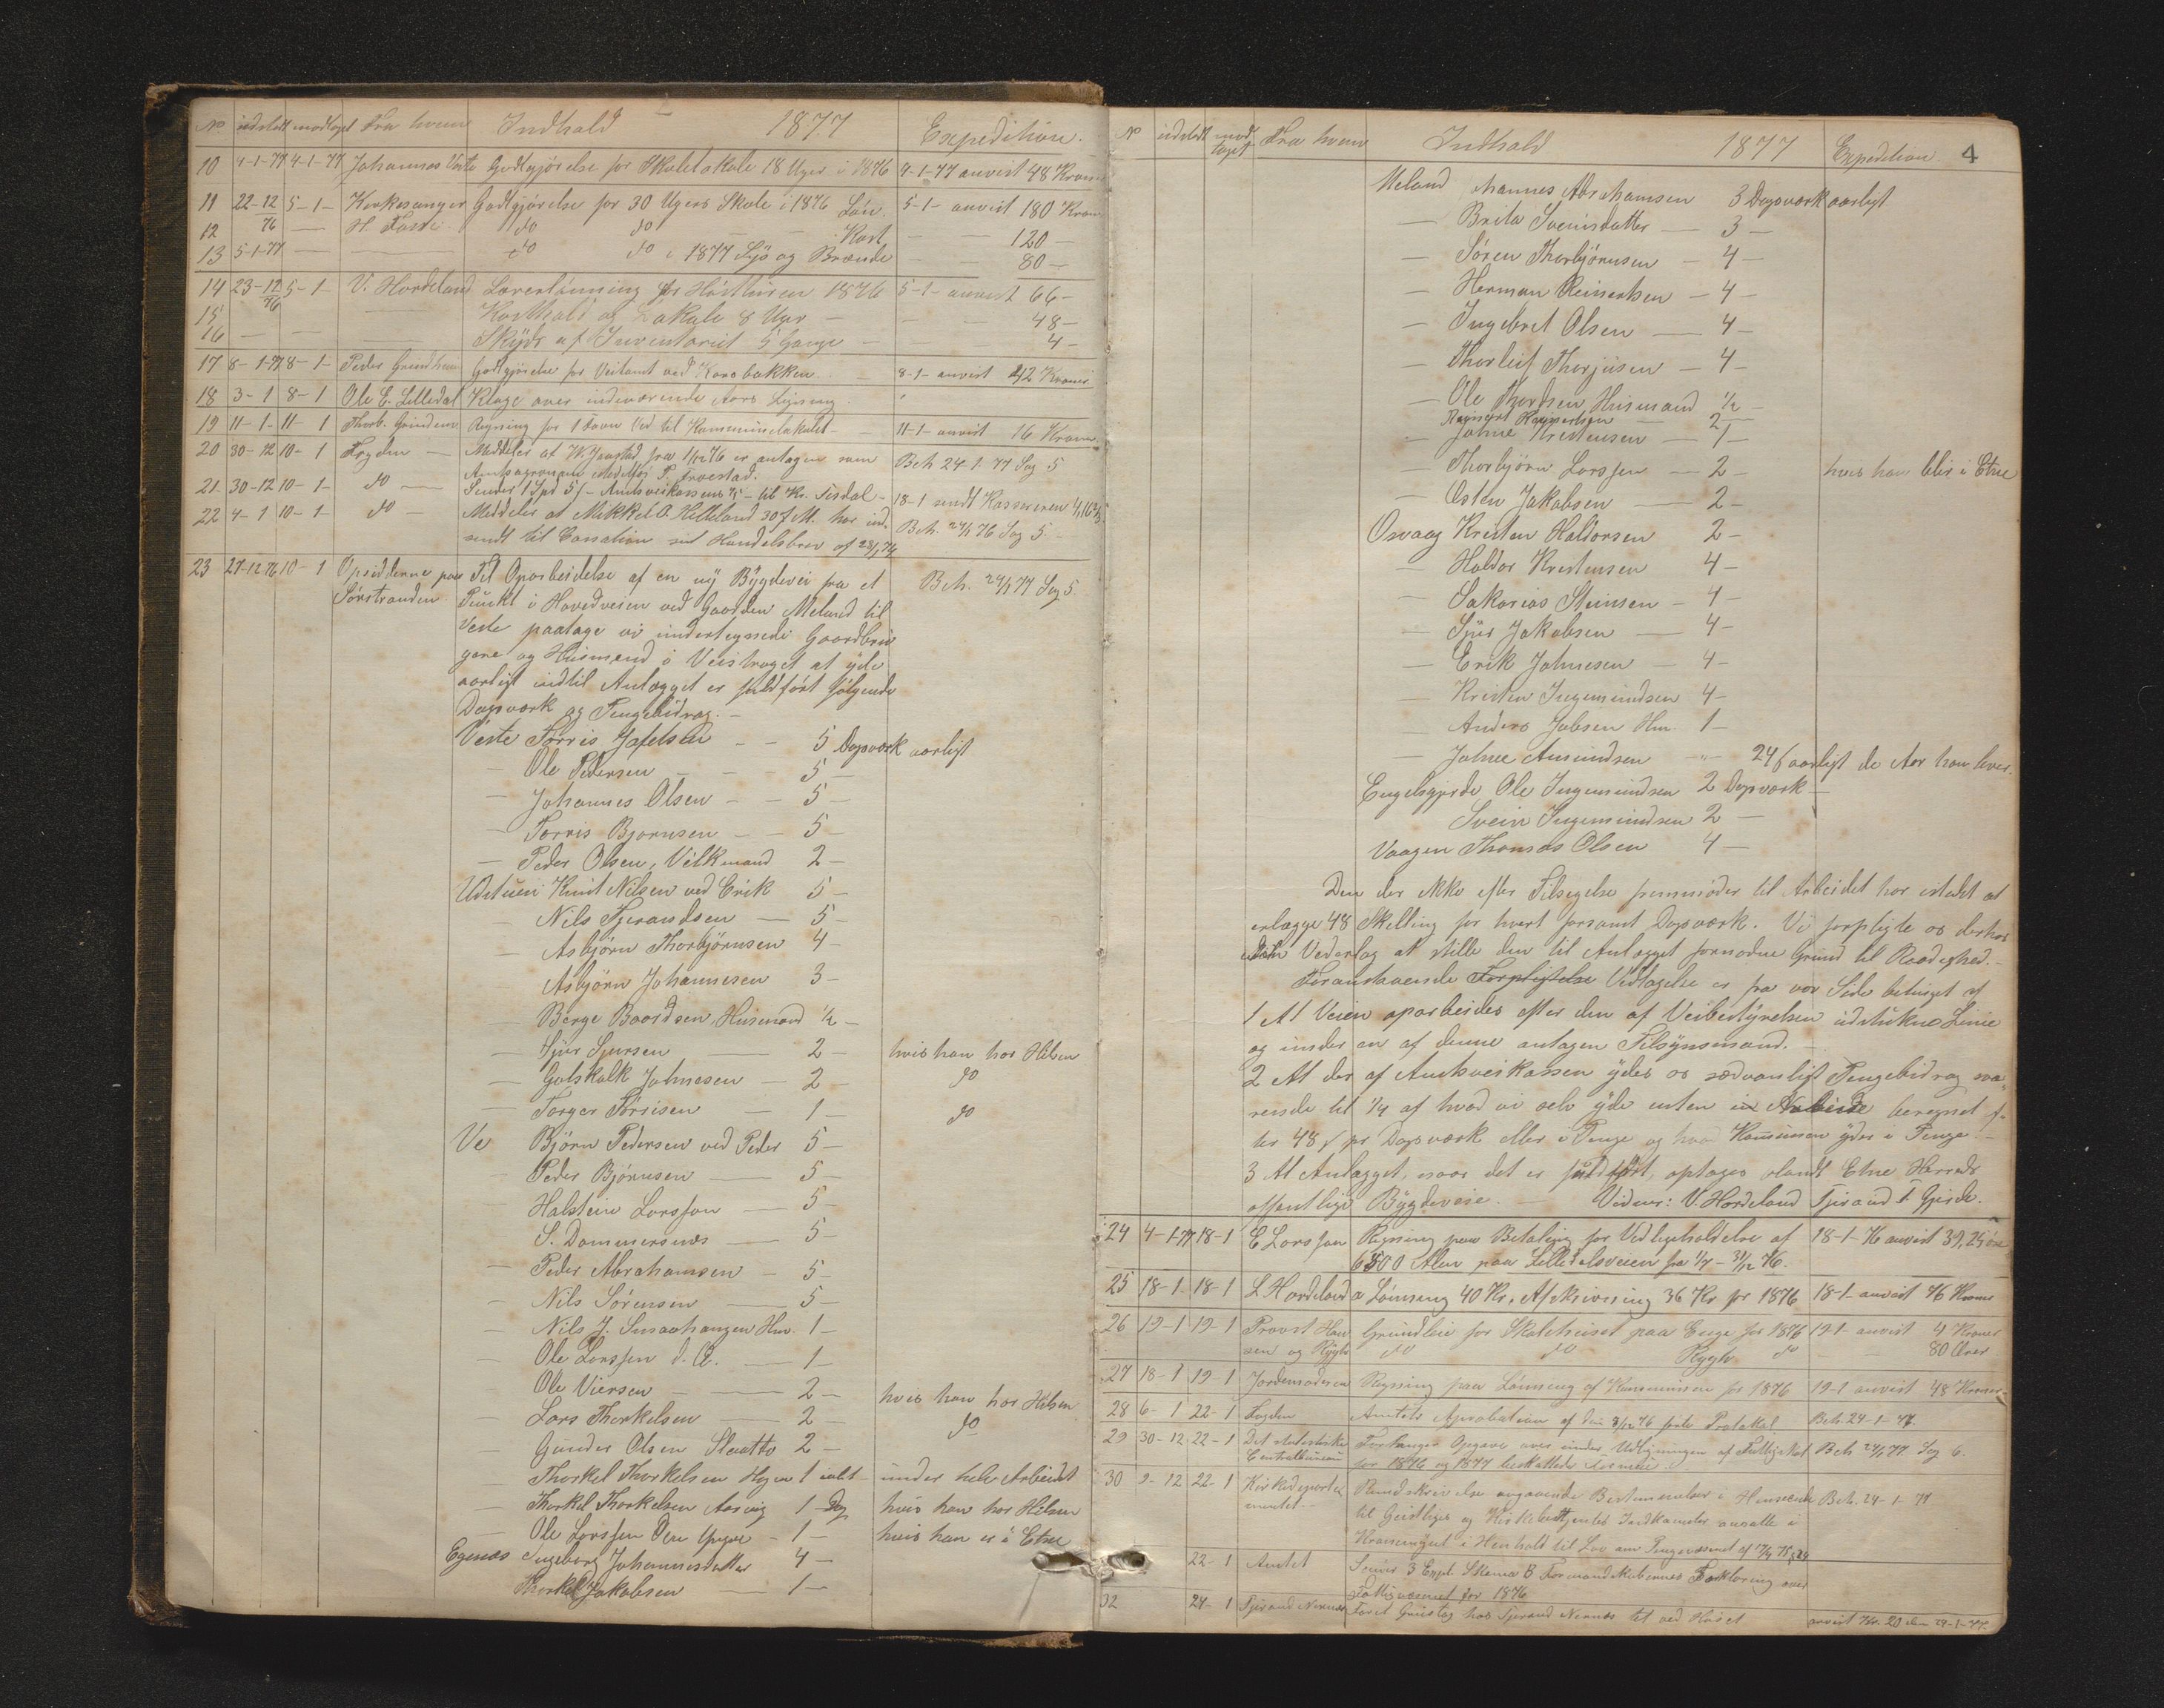 No udstedt modtaget Fra hvem Indhald 1877 Expedition.
10 4-1-77 4-1-77 Johannes Godtgjørelse for Skolelokale 18 Uger i 1876 4-1-77 anvist 48 Kroner
11 22-12/76 5-1- Kirkesanger Godtgjørelse for 30 Ugers Skole i 1876 Løn. 5-1- anvist 180 Kron
12 — H do do — — Kost — — 120 —
13 5-1-77 — — do do i 1877 Lys og Brænde — — 80 —
14 23-12/76 5-1- V. Hordeland Lærerlønning for 1876 5-1- anvist 66 —
15 — Kosthold og Lokale 8 Uger — — — 48 —
16 — — — Skyds af Inventariet 5 Gange — — — 4 —
17 8-1-77 8-1- Peder Grindheim Godtgjørelse for ved 8-1- anvist 12 Kroner
18 3-1 8-1 Ole E. Lilledal Klage over nedværende Aars Ligning
19 11-1- 11-1 Thorb. Grindheim Regning for 1 Favn Ved til Kommunelokalet — 11-1- anvist 16 Kroner
20 30-12 10-1 Fogden — Meddeles at fra 1/12 76 er antagen som Beh. 24-1-77 Sag 5
Amtsagronom
21 30-12 10-1- do — Sender 1 Spd 5 f — Amtsveikassens — til Kr. Tesdal — 18-1 sendt Kassereren
22 4-1 10-1- do — Meddeles at Mikkel O. Helleland har ind- Beh. 24/1 76 Sag 5 —
sendt til Cassation sit Handelsbrev af
23 27-12 76 10-1 Opsidderne paa Til Oparbeidelse af en ny Bygdevei fra et Beh. 24/1 77 Sag 5
Sørstranden Punkt i Hovedveien ved Gaarden Meland til
Veste paatage vi undertegnede Gaardbru-
gere og Husmænd i Veistrøget at yde
aarligt indtil Anlægget er fuldført følgende
Dagsværk og Pengebidrag. —
Veste Tørris Jofelsen — — 5 Dagsværk aarligt
— Ole Pedersen — — 5 —
— Johannes Olsen — — 5 —
— Tørris Bjørnsen — — 5 —
— Peder Olsen, Vilkmand 2 —
Knut Nilsen ved Erik 5 —
— Nils Tjerandsen — 5 —
— Asbjørn Thorbjørnsen 4 —
Asbjørn Johannesen 3 —
Børge Baardsen, Husmand ½ —
— Sjur Sjursen 2 — hvis han har Helsen
— Gotskalk Johnesen — 2 — do
— Torger Tørrisen — 1 — do
Ve Bjørn Pedersen ved Peder 5 —
— Peder Bjørnsen — 5 —
— Halstein Larssen — 5 —
— S. Dommersnes — 5 —
— Peder Abrahamsen — 5 —
— Nils Sørensen — 5 —
— Nils J. Smaahaugen Hm. 1 —
— Ole Larssen d. Æ. — 1 —
Ole Viersen — — 2 — hvis han har Helsen
— Lars Thorkelsen — 2 — do
— Gunder Olsen Slaatto 2 —
Thorkel Thorkelsen 1 ialt under hele Arbeidet
— Thorkel Thorkelsen 1 Dag hvis han har Helsen
— Ole Larssen den Yngre — 1 — hvis han er i Etne
Egenæs Ingeborg Johannesdatter 4 —
Thorkel Jakobsen — 1 —
No udstedt mod- taget Fra hvem Indhald 1877 Expedition 4
Meland Mannes Abrahamsen 3 Dagsværk aarligt
— Brita Sveinsdatter — 3 —
— Søren Thorbjørnsen — 4 —
— Herman Reinertsen — 4 —
— Ingebret Olsen — 4 —
— Thorleif Thorjusen — 4 —
— Ole Thordsen Husmand ½ —
— Rasmus — 2 —
— Johne Kristensen — 1 —
— Thorbjørn Larssen — 2 — hvis han blir i Etne
— Østen Jakobsen — 2 —
Osvaag Kristen Haldorsen 2 —
— Haldor Kristensen 4 —
— Sakarias Steinsen — 4 —
— Sjur Jakobsen — 4 —
— Erik Johnesen — 4 —
— Kristen Ingemundsen 4 —
— Anders Jobsen Hm. 1 —
— Johne Amundsen — 24 s aarligt de Aar han lever.
Engelsgjerde Ole Ingemundsen 2 Dagsværk —
Svein Ingemundsen 2 —
Vaagen Thomas Olsen 4 —
Den der ikke efter Tilsigelse fremmøder til Arbeidet har istedet at
erlægge 48 Skilling for hvert forsømt Dagsværk. Vi forpligte os derhos
uden Vederlag at stille den til Anlægget fornødne Grund til Raadighed. —
Foranstaaende Forpligtelse Vedtagelse er fra vor Side betinget af
1 At Veien oparbeides efter den af Veibestyrelsen udstukne Linie
og under en af denne antagen Tilsynsmand. —
2 At der af Amtsveikassen ydes os sædvanligt Pengebidrag sva-
rende til ¼ af hvad vi selv yde enten in Arbeide beregnet ef-
ter 48 s pr Dagsværk eller i Penge og hvad Kommunen yder i Penge —
3 At Anlægget, naar det er fuldført, optages blandt Etne Herreds
offentlige Bygdeveie. — Vidner: V. Hordeland Tjerand T. Gjerde.
24 4-1-77 18-1 E Larssen Regning paa Betaling for Vedligeholdelse af 18-1-76 anvist 39,25 øre
6500 Alen paa Lilledalsveien fra 1/7 – 31/12 76.
25 18-1- 18-1 L Hordeland a Lønning 40 Kr., Afskrivning 36 Kr for 1876 18-1- anvist 76 Kroner
26 19-1 19-1 Provst Han- Grundleie for Skolehuset paa Enge for 1876 19-1- anvist 4 Kroner
sen og Rygh do do Rygh do — — 80 Ører
27 18-1 19-1 Jordemoderen Regning paa Lønning af Kommunen for 1876 19-1 anvist 48 Kroner
28 6-1 22-1 Fogden Amtets Aprobation af den Protokol Beh. 24-1-77.
29 30-12 22-1 Det statistiske Forlanger Opgave over under Udligningen af Fattigskat Beh 24/1 77 Sag 6.
Centralbureau for 1876 og 1877 beskattede
30 9-12 22-1 Kirkedeparte- Rundskrivelse angaaende Bestemmelser i Henseende Beh. 24-1-77
mentet — til Geistliges og Kirkebetjentes Indkomster ansatte i
Kornmynt i Henhold til Lov om Pengevæsenet af
22-1 Amtet Sender 3 Expl. Skema B Formandskabernes Forklaring over
Fattigvæsenet for 1876
32 24-1 Tjerand Nernæs Grustag hos Tjerand Nernæs anvist Kr. 20 den 24-1-77.